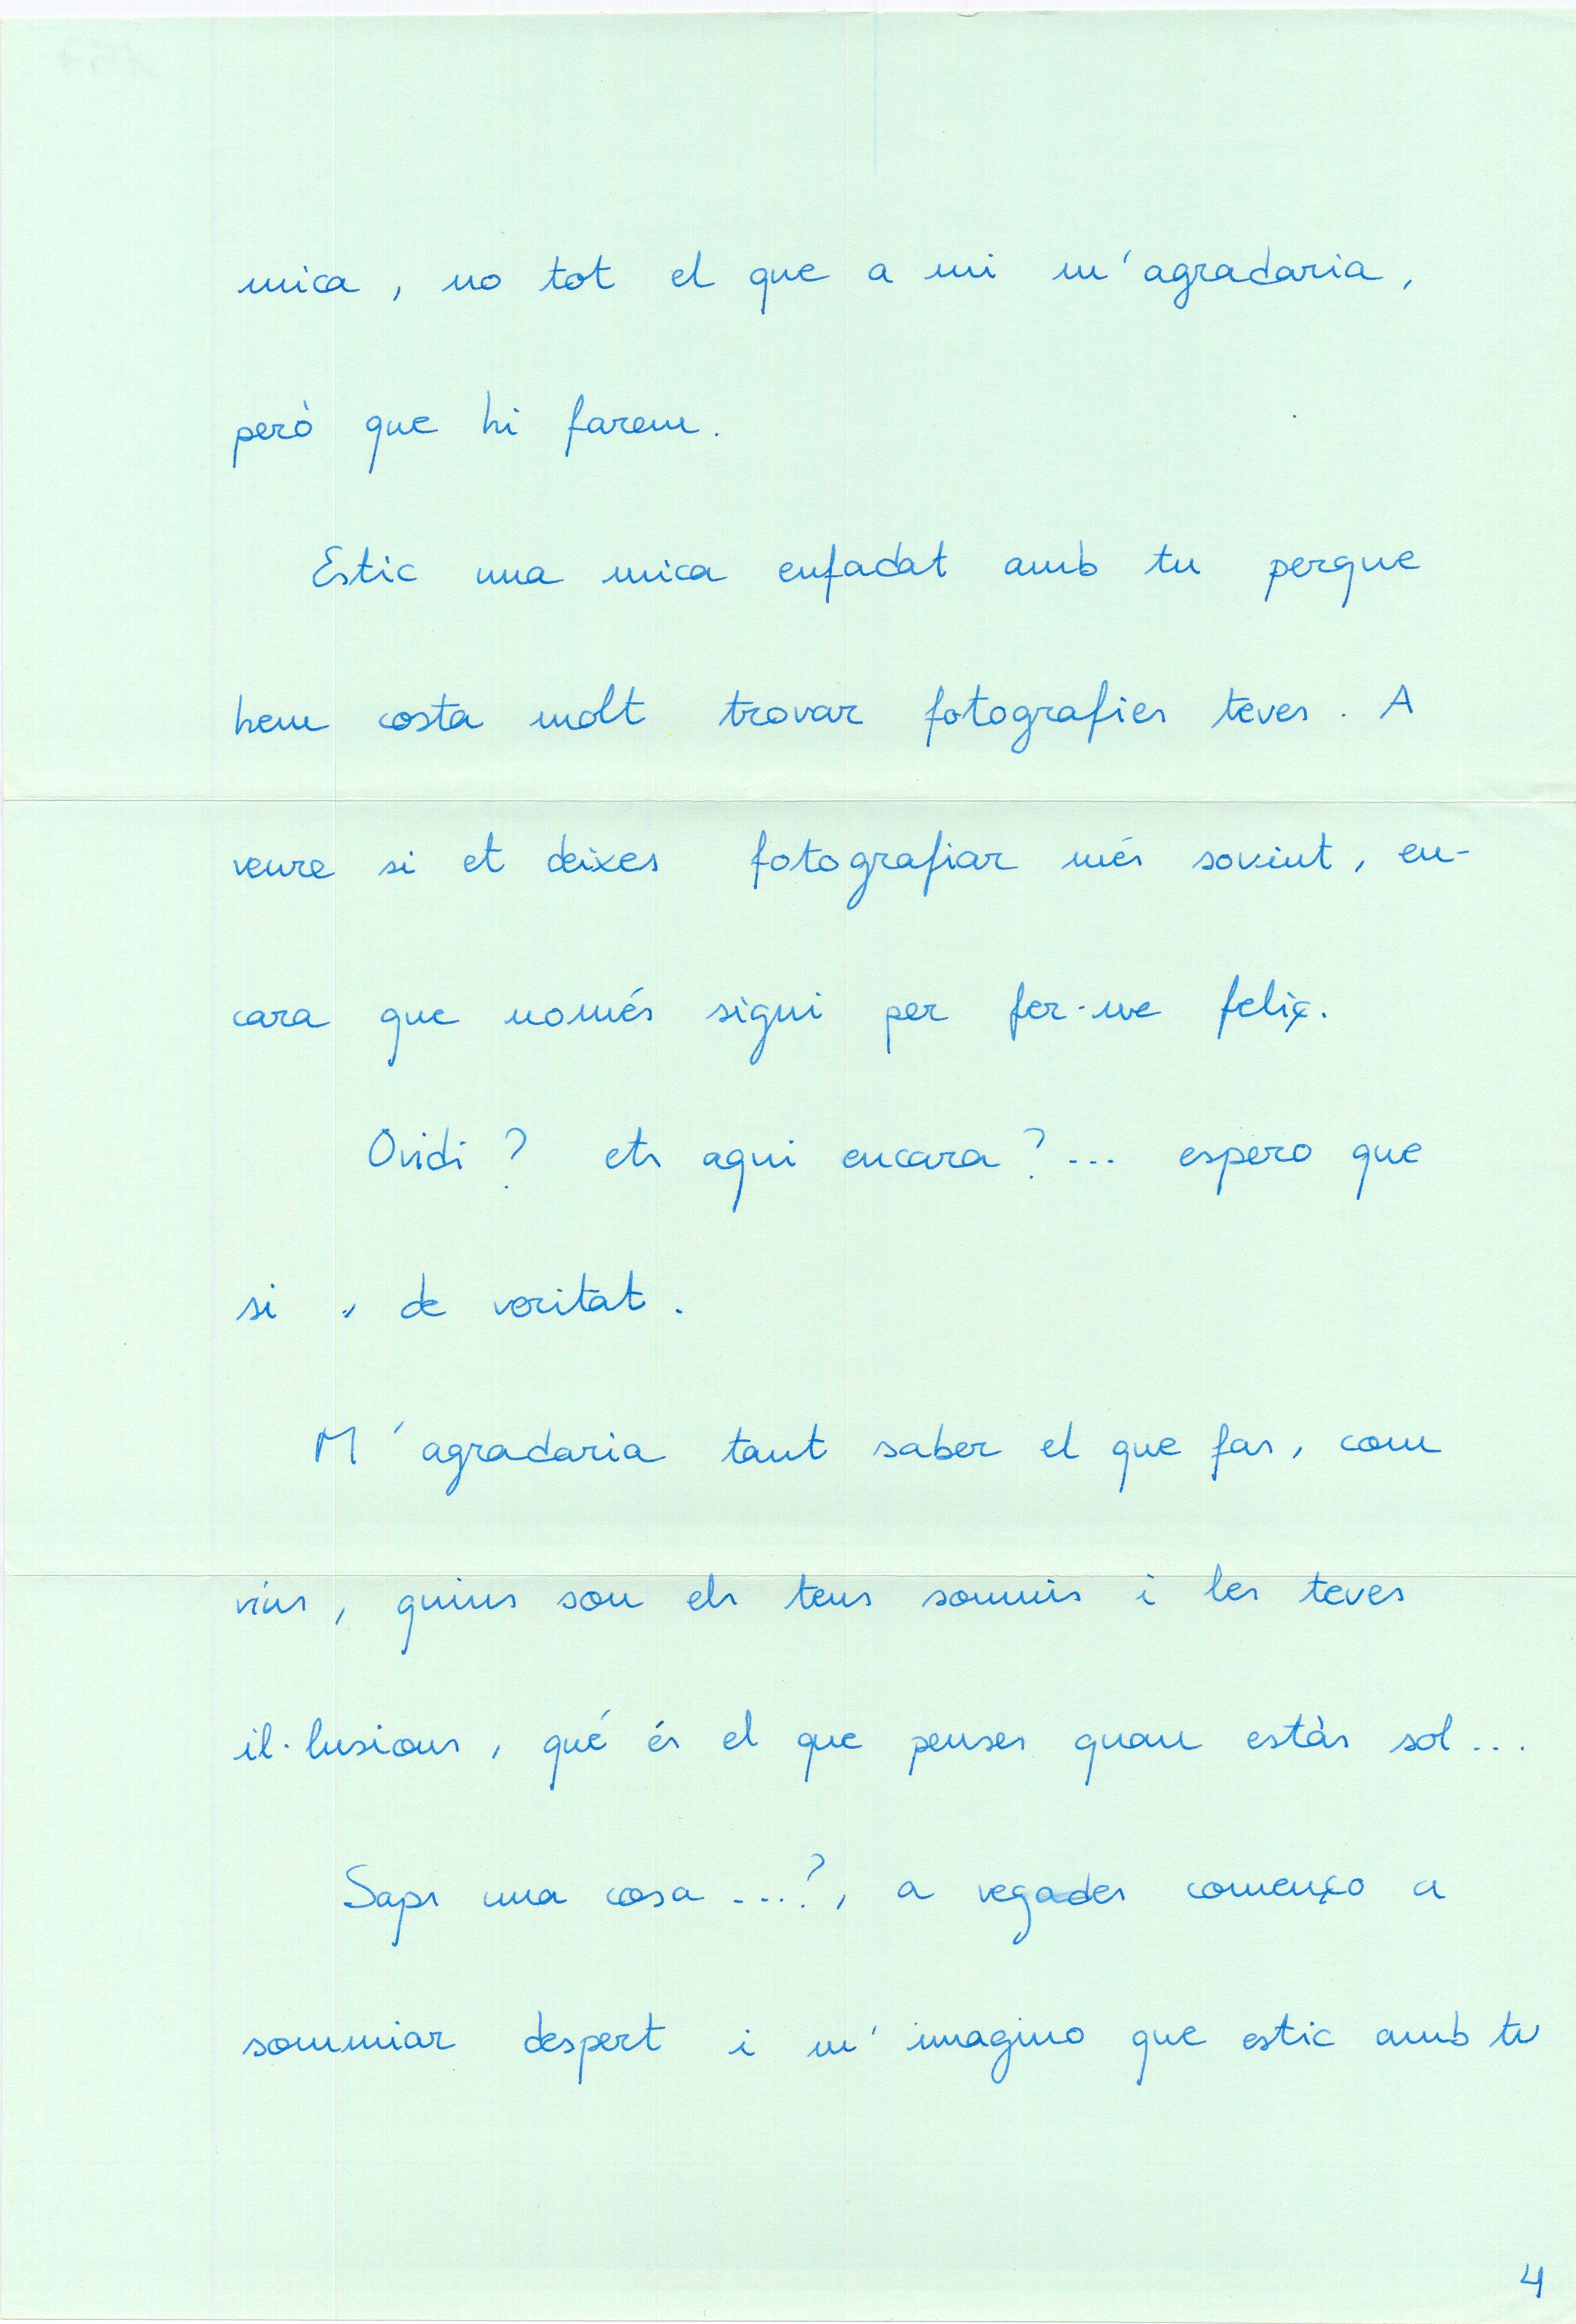 mica, no tot el que a mi m'agradaria,
però que hi farem.
Estic una mica enfadat amb tu perque
hem costa molt trovar fotografies teves. A
veure si et deixes fotografiar més sovint, en-
cara que només sigui per fer-me feliç.
Ovidi? ets aqui encara?... espero que
si, de veritat.
M'agradaria tant saber el que fas, com
vius, quins son els teus somnis i les teves
il·lusions, qué és el que penses quan estàs sol...
Saps una cosa...?, a vegades començo a
sommiar despert i m'imagino que estic amb tu
4